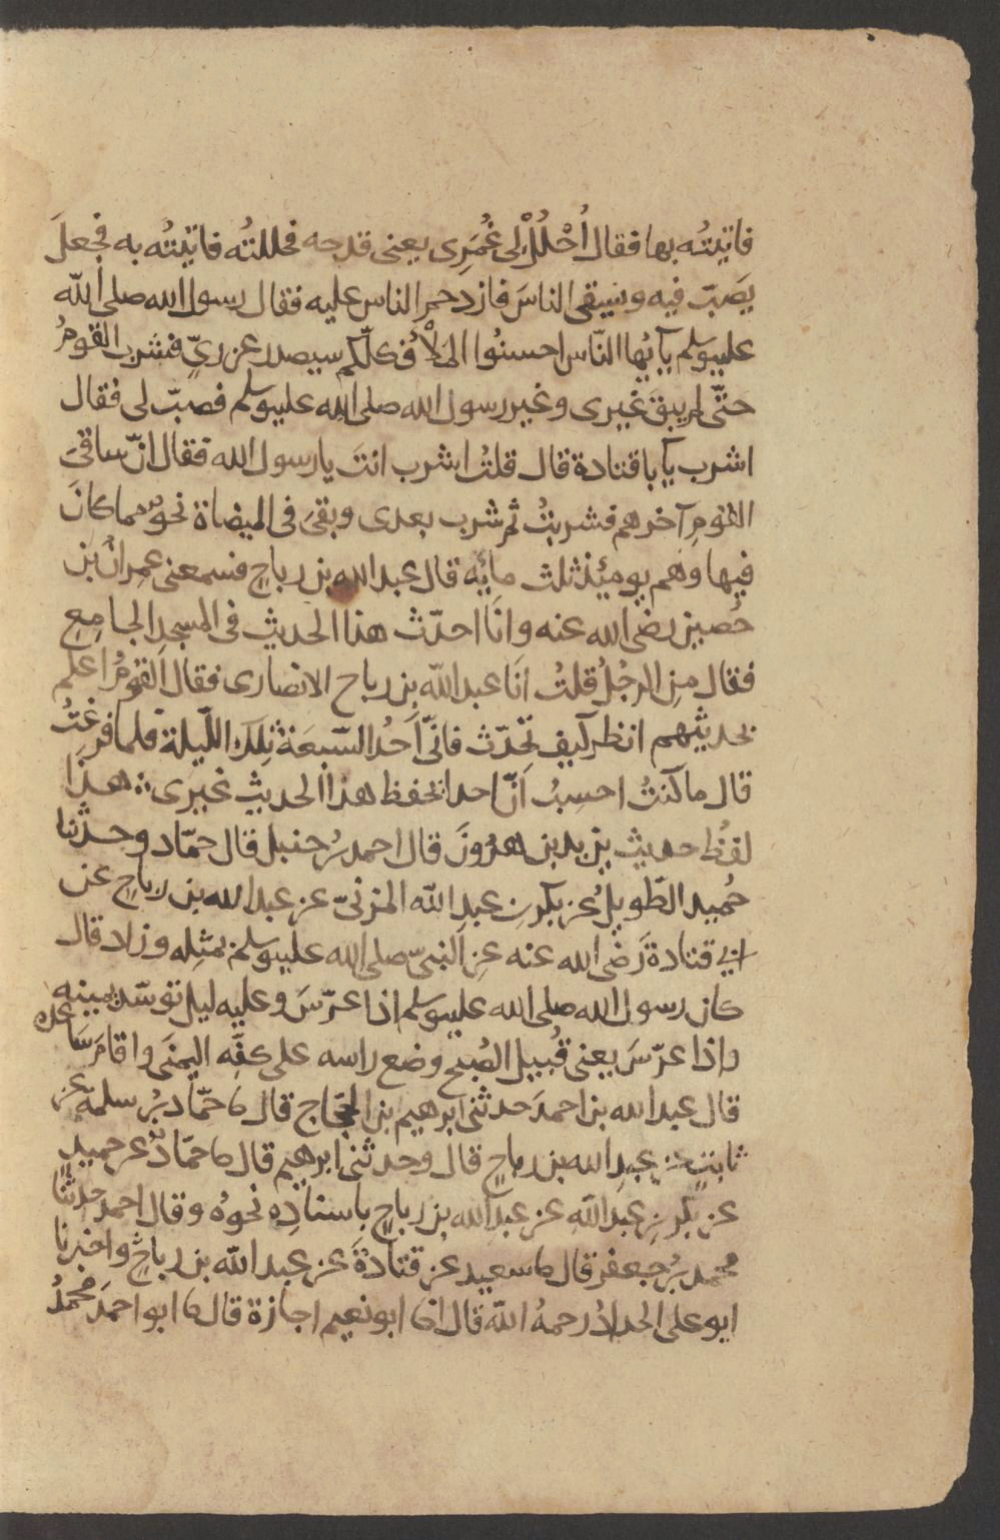 فاتيتُه بها فقال اُحْلُلْ لى غُمَرِى يعنى قدحه فحللتُه فاتيتُه به فجعلَ
يصَبّ فيه ويسقى الناسَ فازدحم الناس عليه فقال رسول الله صلى الله
عليه وسلم يآيّها النّاس احسنُوا الملأ فكلّكم سيصدر عن رىٍّ فشرب القومُ
حتّى لم يبق غيرى وغير رسول الله صلى الله عليه وسلم فصبّ لى فقال
اشرب يآبا قتادة قال قلتُ اشرب انتَ يا رسول الله فقال انّ ساقىَ
القومِ آخرهم فشربتُ ثم شرب بعدى وبقىَ فى الميضاة نحوٌ مما كانَ
فيها وهم يومئذ ثلث مائه قال عبد الله بن رباحٍ فسمعنى عِمرانُ بن
حُصين رضى الله عنه وانَا احدّث هذا الحديث فى المسجد الجامِعِ
فقال مِن الرجُلُ قلتُ انَا عبد الله بن رباح الانصارى فقال القومُ اعلم
بحديثهم انظر كيف تحدّث فانّى اَحدُ السّبعَة تِلكَ اللّيلة فلما فرغتُ
قال ما كنتُ احسِبُ اَنّ احدا يحفظ هذا الحديث غيرى هذا
لفظُ حديث يزيد بن هٰرونَ قال احمد بن حنبل قال حمّاد وحدثنا
حُميد الطّويلُ عن بكر بن عبدِ الله المزنىّ عن عبد الله بن رباحٍ عن
ابى قتادة رَضى الله عنه عن النبىّ صلى الله عليه وسلم بمثلِه وزاد قال
كان رسول الله صلى الله عليه وسلم اذا عرّسَ وعليه ليل توسّد يمينه
واذا عرّسَ يعنى قُبيل الصُبح وضع راسه على كفّه اليمنَى واقامَ ساعده
قال عبد الله بن احمدَ حدثنى ابرهيم بن الحجّاج قال نا حمّاد بنُ سلمة عن
ثابتٍ عن عبدِ الله بن رباحٍ قال وحدثنى ابرهيم قال نا حمّادٌ عن حميدٍ
عن بكر بن عبد اللهِ عن عبد الله بن رباحٍ باسنادِه نحوهُ وقال احمد حدثنا
محمد بنُ جعفر قال نا سعيد عن قتادةَ عن عبد الله بن رباحٍ واخبرنا
ابو على الحدادُ رحمهُ الله قال انا ابو نعيم اجازة قال نا ابو احمدَ محمدُ